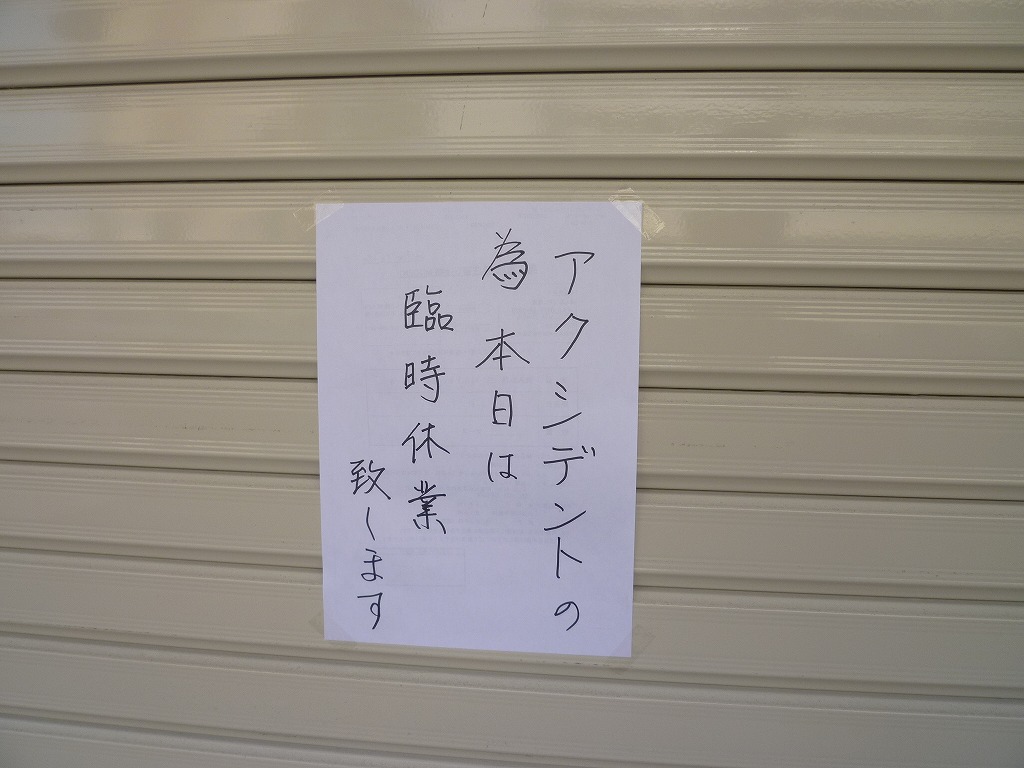 アクシデントの
為 本日は
臨時休業
致します